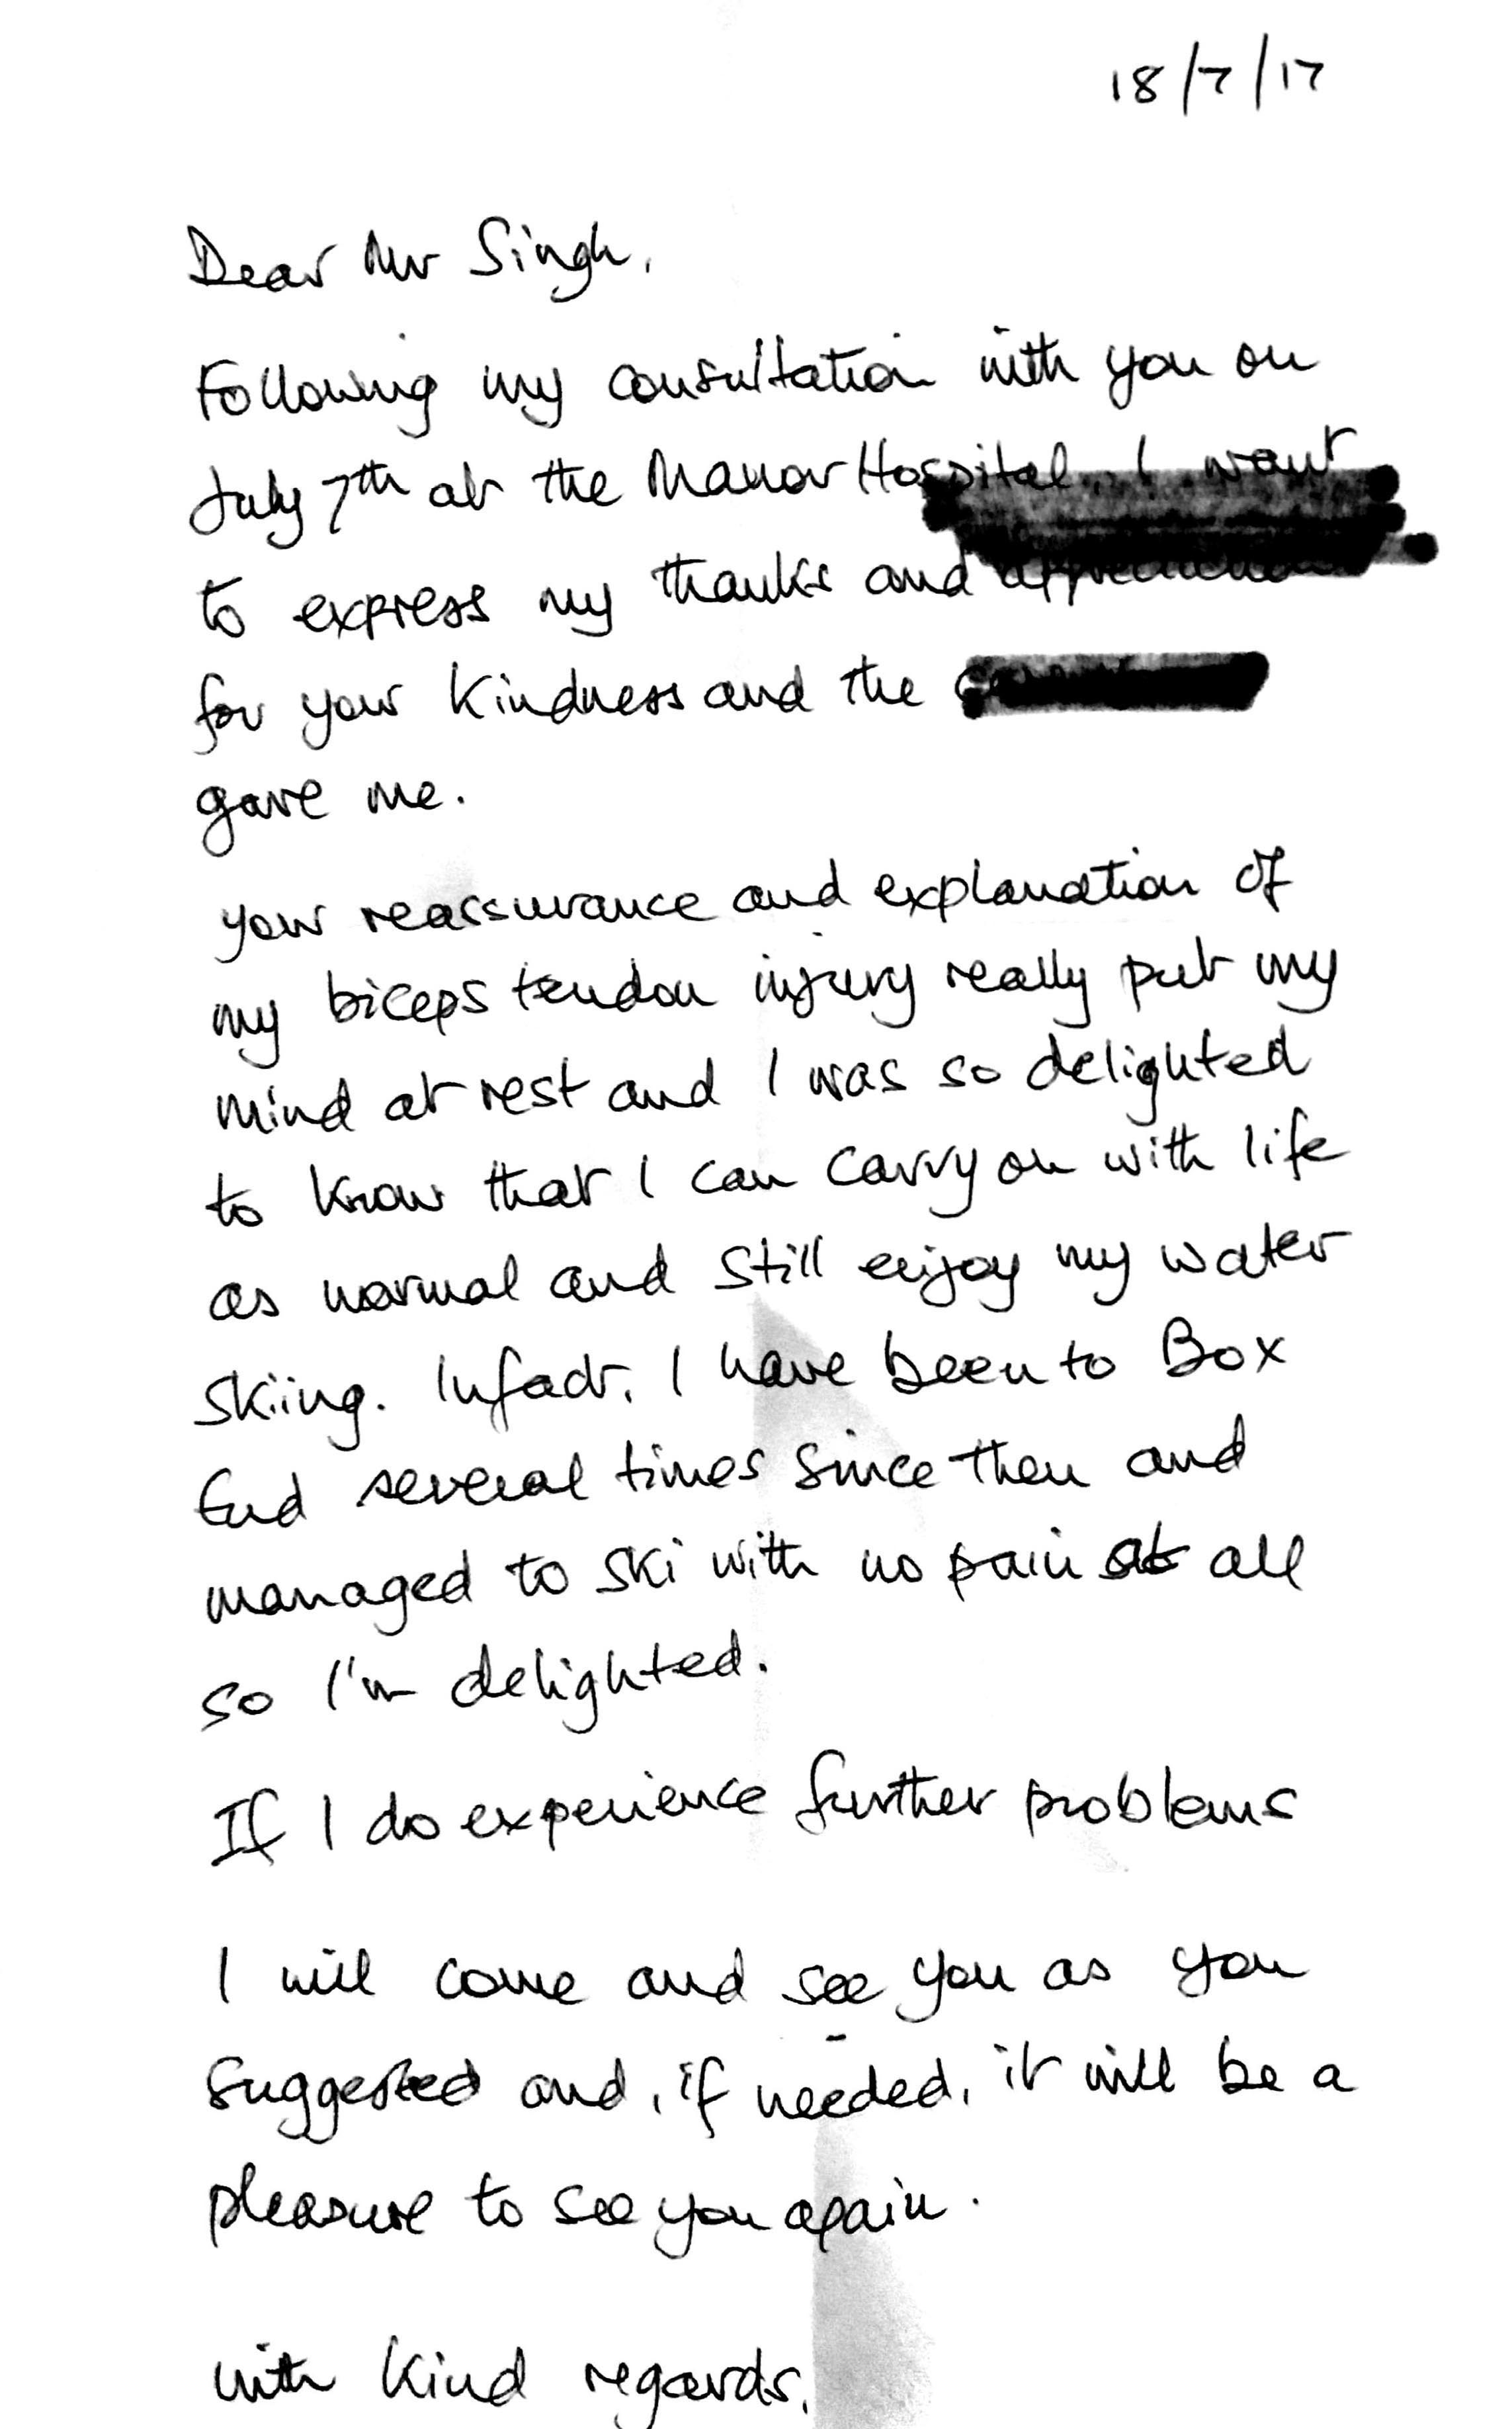 18/7/17
Dear Mr Singh,
Following my consultation with you on
July 7th at the Manor Hospital, I want
to express my thanks and appreciation
for your kindness and the
gave me.
your reassurance and explanation of
my biceps tendon injury really put my
mind at rest and I was so delighted
to know that I can carry on with life
as normal and still enjoy my water
skiing. Infact, I have been to Box
End several times since then and
managed to ski with no pain at all
so I'm delighted.
If I do experience further problems
I will come and see you as you
suggested and, if needed, it will be a
pleasure to see you again.
with kind regards,